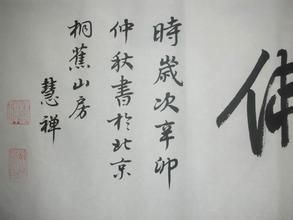 時歲次辛卯
仲秋書於北京
桐蕉山房
慧禅